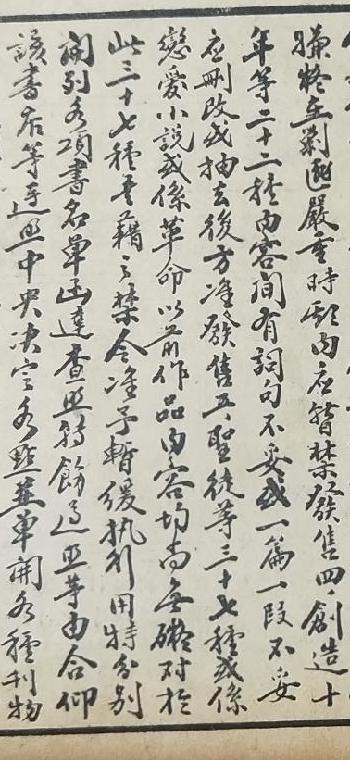 嫌疑在剿匪嚴重時期內應暫禁發售四、創造十
年等二十二種內容間有詞句不妥或一篇一段不妥
應刪改或抽去後方准發售五、聖徒等三十七種或係
戀愛小說或係革命以前作品內容均尚無礙對於
此三十七種書籍之禁令准予暫緩執行用特分別
開列各項書名單函達查照轉飭遵照等由合仰
該書店等遵照中央決定各點並單開各種刊物